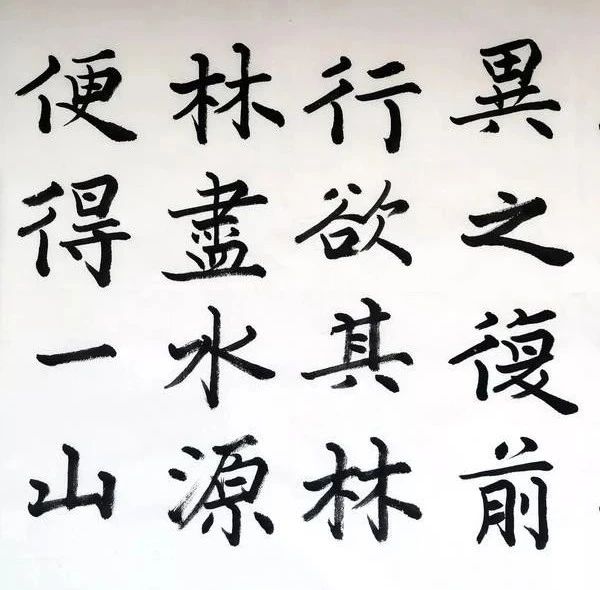 異之復前
行欲其林
林盡水源
便得一山